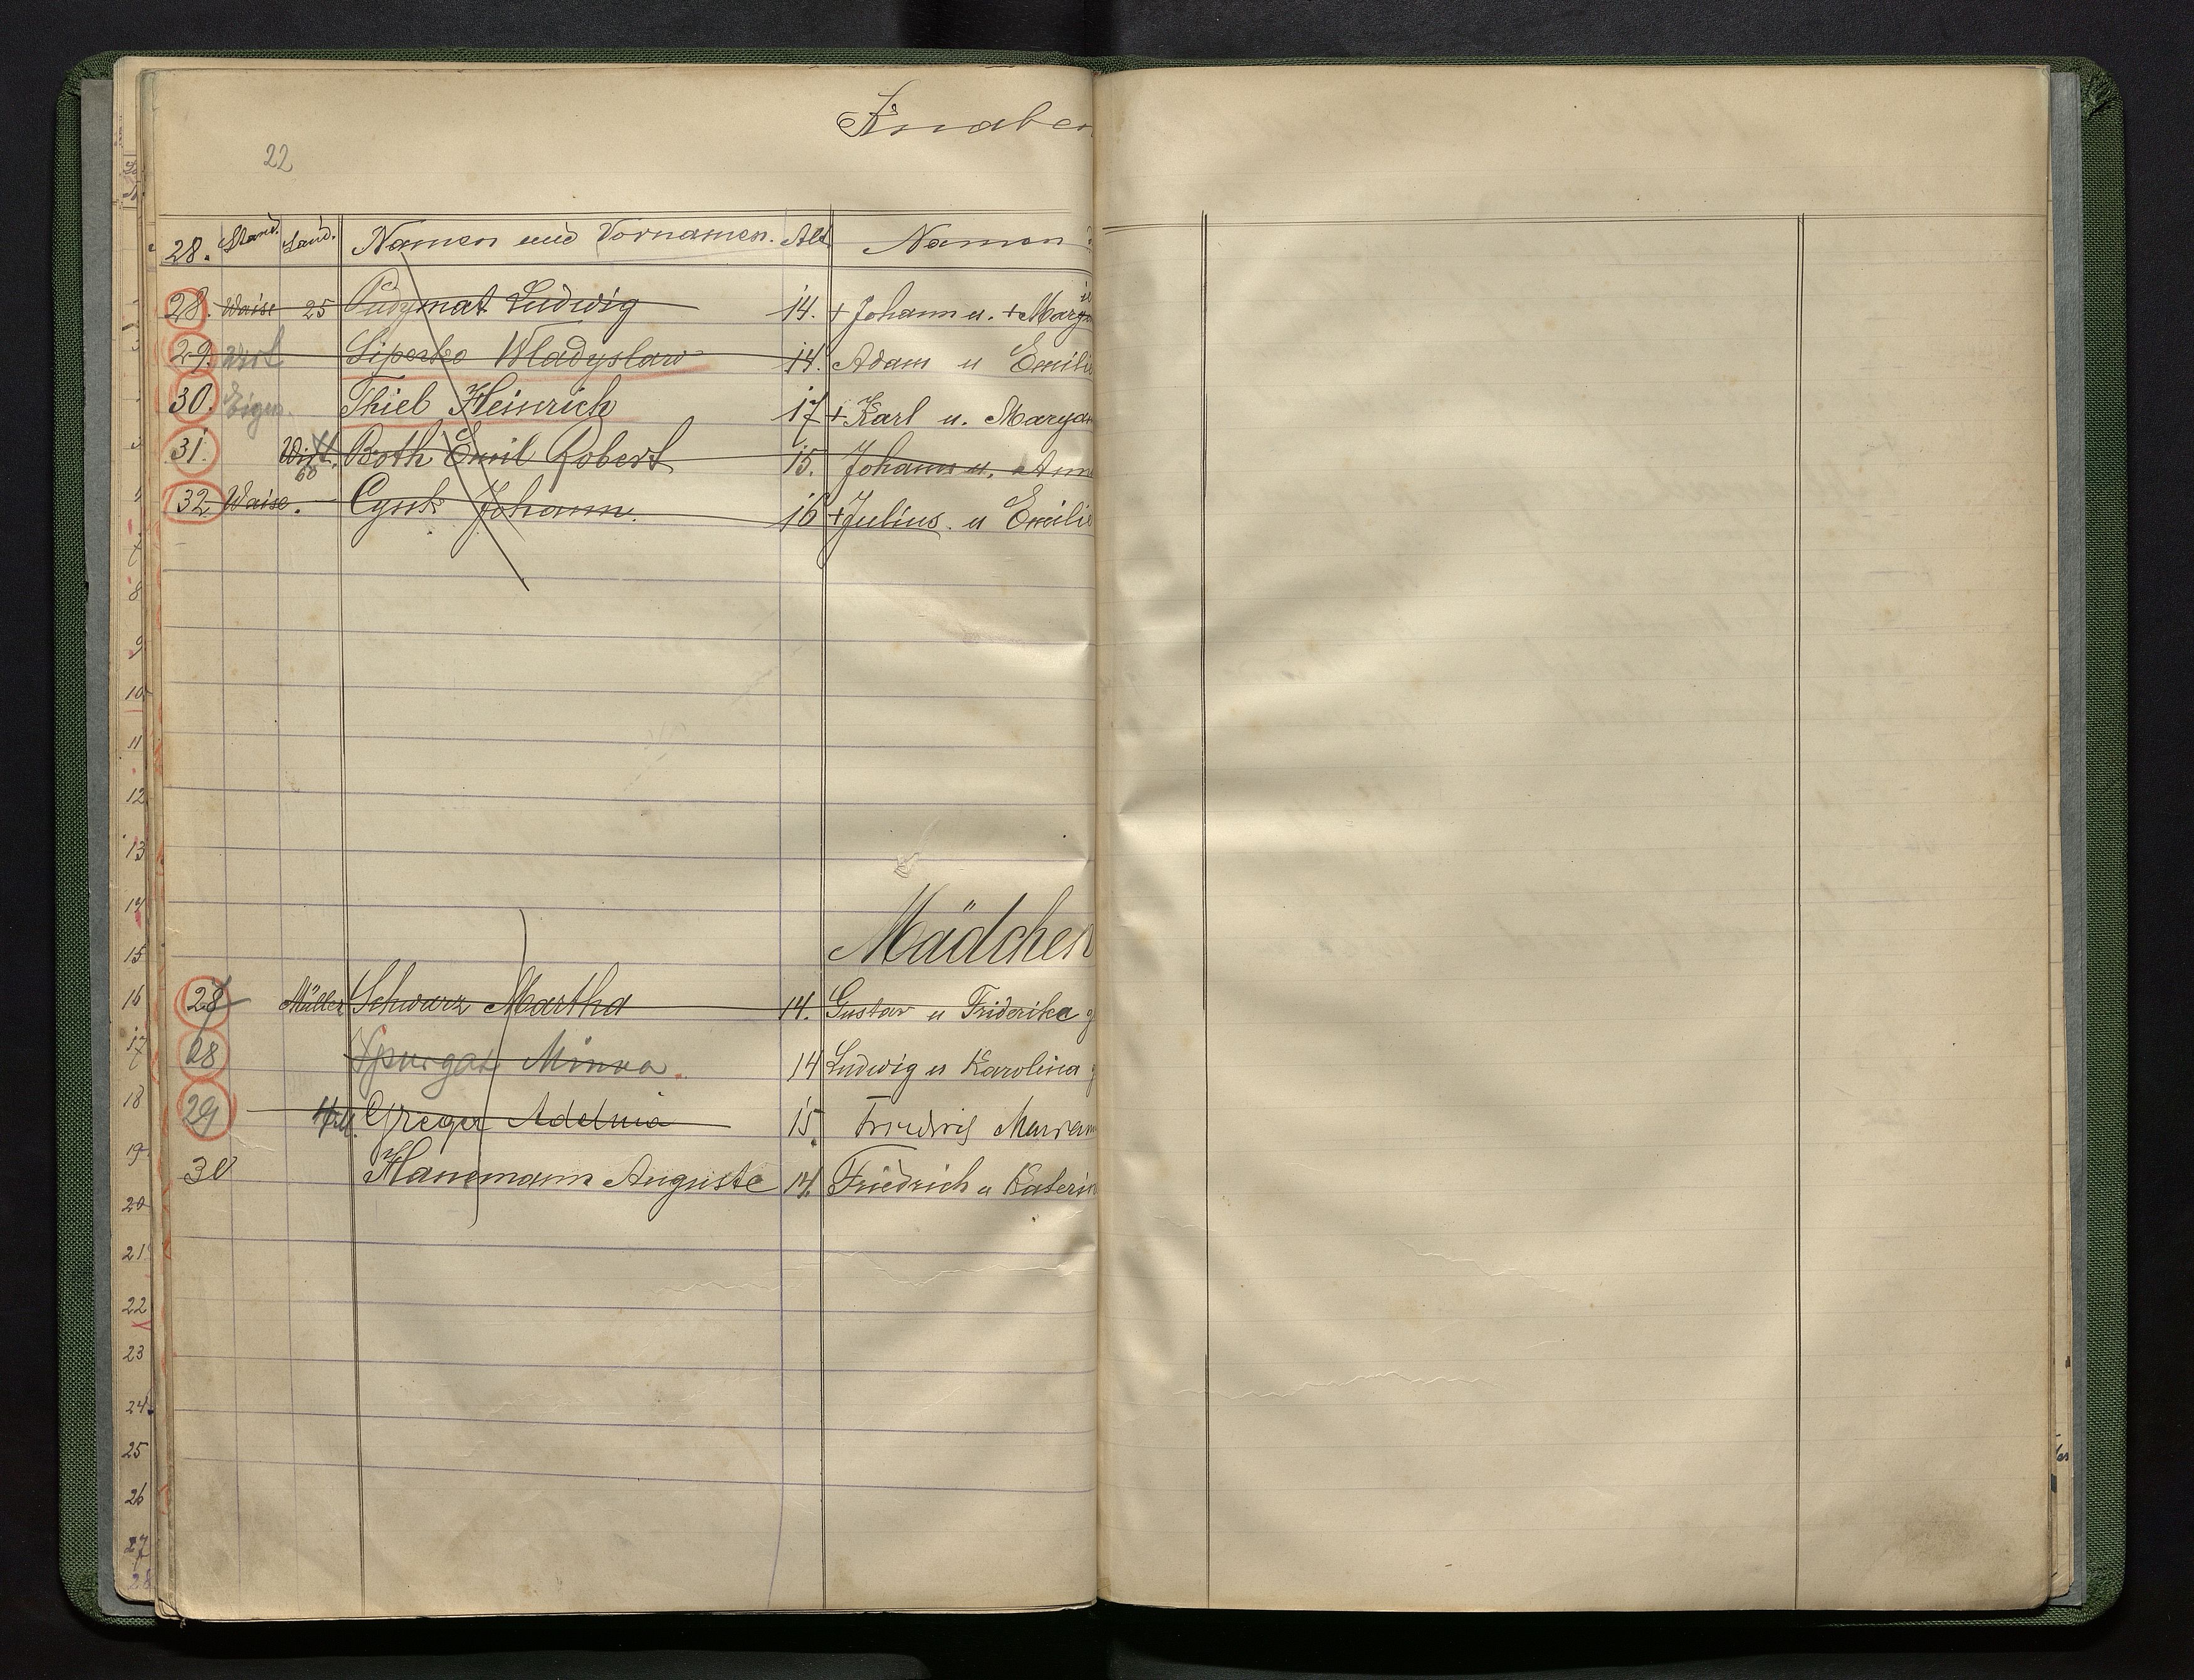 Knaben
22
28. Stand. Land. Namen und Vornamen. Alt Namen
28. Waise 25 Pudymat Ludwig 14. + Johann u. + Mary
29. Wirt Liperko Wladyslaw 14. Adam u Emilie
30. Eigen. Thiel Heinrich 17 + Karl u. Maryan
31. Wirt. 60 Both Emil Robert 15. Johann u. Anna
32. Waise. Cynk Johann. 16 + Julius. u Emilie
8
9
10
11
12
13
14
Mädchen
15
16 28 Müller Schwarz Martha 14. Gustav u Friderika g
17 28 Spurgat Minna. 14 Ludwig u Karolina g
18 29 Greger Adelmia 15. Friedrich
19 30 Hanemann Auguste 14. Friedrich u Katerin
20
21
22
23
24
25
26
27
28